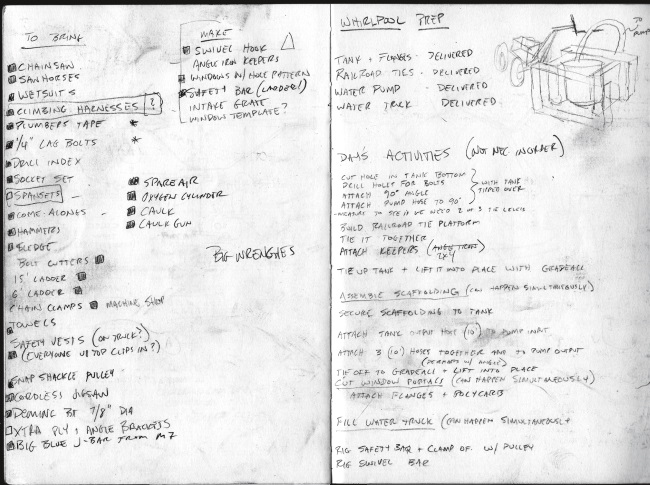 TO BRING
CHAINSAW
SAWHORSES
WETSUITS
CLIMBING HARNESSES ?
PLUMBERS TAPE *
1/4" LAG BOLTS *
DRILL INDEX
SOCKET SET
SPANSETS -
COME-ALONGS -
HAMMERS
SLEDGE
BOLT CUTTERS
15' LADDER
6' LADDER
CHAIN CLAMPS MACHINE SHOP
TOWELS
SAFETY VESTS (ON TRUCK?)
(EVERYONE UP TOP CLIPS IN?)
SNAP SHACKLE PULLEY
CORDLESS JIGSAW
DEMING BIT 7/8" DIA
XTRA PLY + ANGLE BRACKETS
BIG BLUE J-BAR FROM M7
MAKE
SWIVEL HOOK
ANGLE IRON KEEPERS
WINDOWS W/ HOLE PATTERN
SAFETY BAR (LADDER!)
INTAKE GRATE
WINDOW TEMPLATE?
SPARE AIR
OXYGEN CYLINDER
CAULK
CAULK GUN
BIG WRENCHES
WHIRLPOOL PREP
TANK + FLANGES - DELIVERED
RAILROAD TIES - DELIVERED
WATER PUMP - DELIVERED
WATER TRUCK DELIVERED
TO PUMP
DAY'S ACTIVITIES (NOT NEC IN ORDER)
CUT HOLE IN TANK BOTTOM
DRILL HOLES FOR BOLTS
ATTACH 90° ANGLE
ATTACH PUMP HOSE TO 90°
WITH TANK TIPPED OVER
MEASURE TO SEE IF WE NEED 2 OR 3 TIE LEVELS
BUILD RAILROAD TIE PLATFORM
TIE IT TOGETHER
ATTACH KEEPERS (ANGLE IRON) 2x4
TIE UP TANK + LIFT IT INTO PLACE WITH GRADEALL
ASSEMBLE SCAFFOLDING (CAN HAPPEN SIMULTANEOUSLY)
SECURE SCAFFOLDING TO TANK
ATTACH TANK OUTPUT HOSE (10') TO PUMP INPUT
ATTACH 3 (10') HOSES TOGETHER AND TO PUMP OUTPUT
(PERHAPS W/ ANGLE)
TIE OFF TO GRADEALL + LIFT INTO PLACE
CUT WINDOW PORTALS (CAN HAPPEN SIMULTANEOUSLY)
ATTACH FLANGES + POLYCARB
FILL WATER TRUCK (CAN HAPPEN SIMULTANEOUSLY
RIG SAFETY BAR + CLAMP OF. W/ PULLEY
RIG SWIVEL BAR